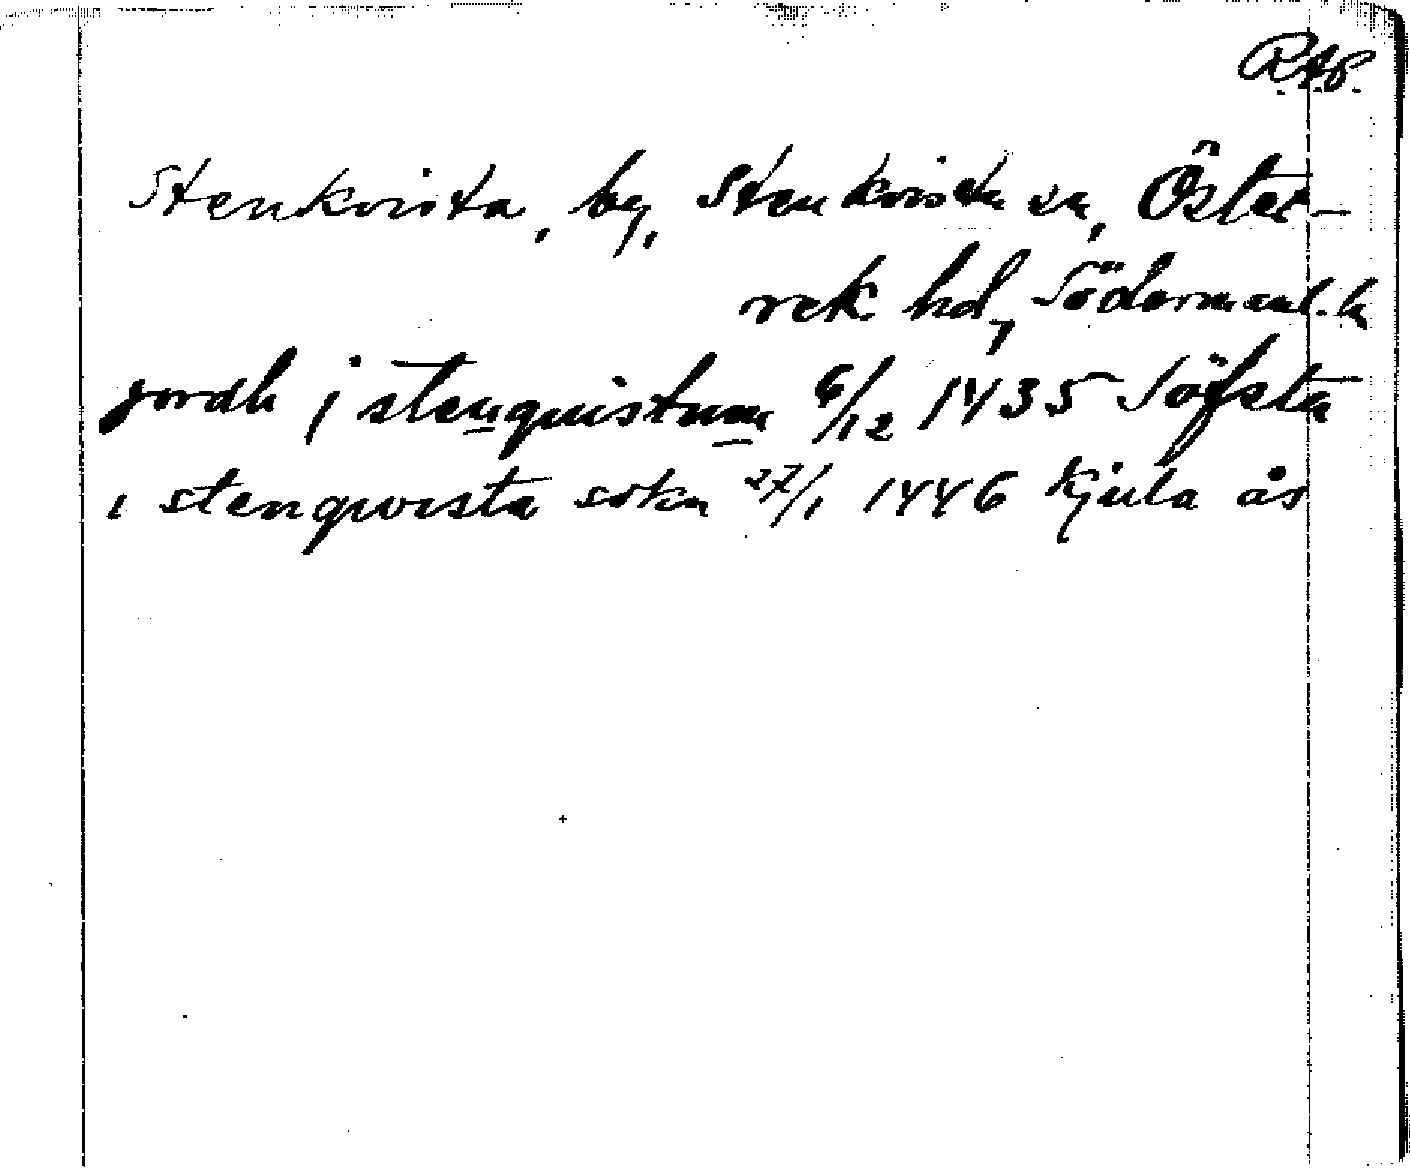 R.A.P.
Stenkvista, by, Stenkvista sn, Öster-
rek hd, Södermanl. ln
jordh j stenquistum 6/12 1435 Söfsta
i stenqwista sokn 27/1 1446 Kjula ås